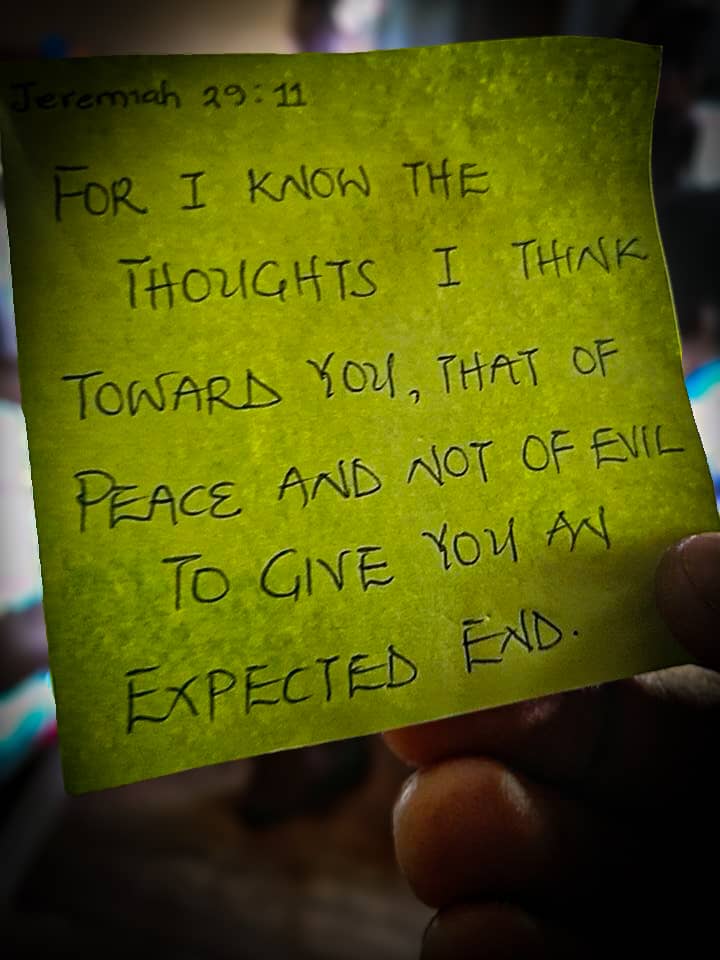 Jeremiah 29:11
FOR I KNOW THE
THOUGHTS I THINK
TOWARD YOU, THAT OF
PEACE AND NOT OF EVIL
TO GIVE YOU AN
EXPECTED END.